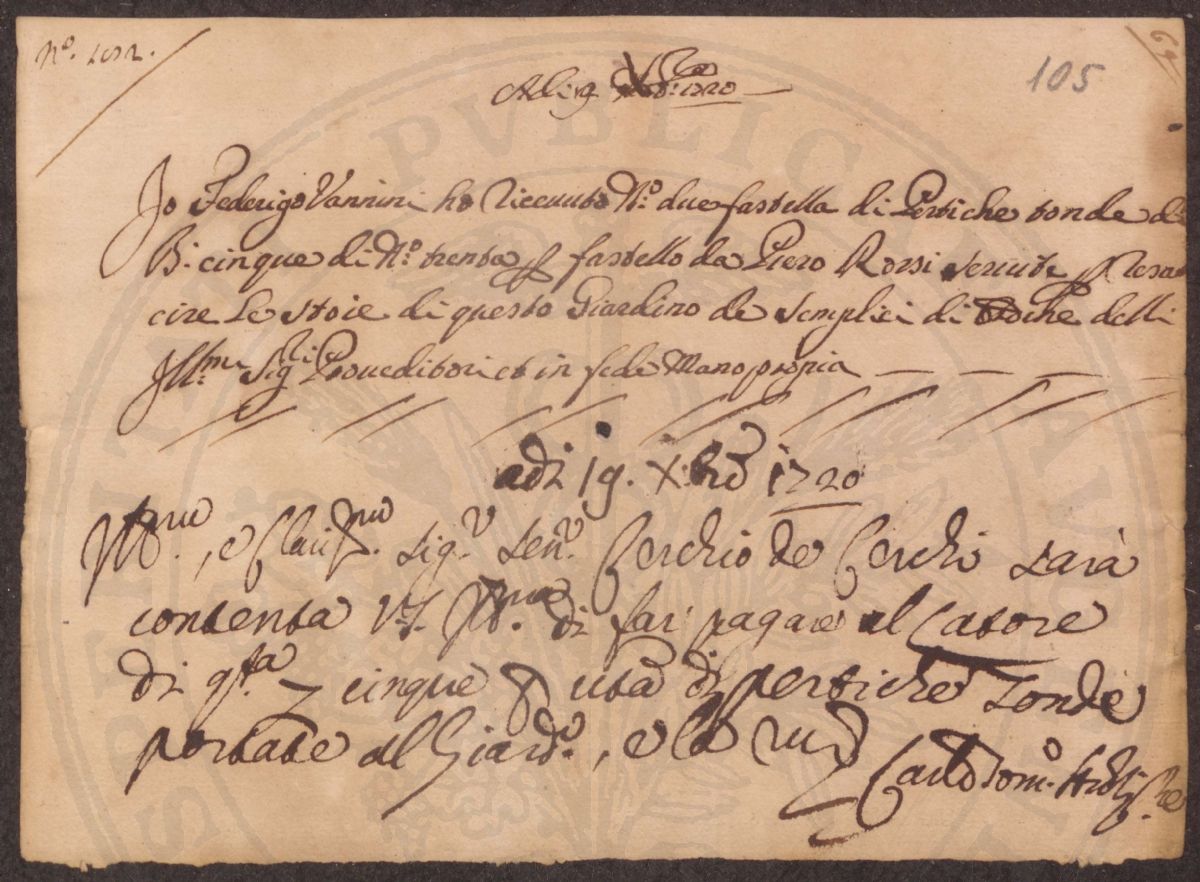 N.o 1052.
69
105
A di 9 Xbre 1720
Io Federigo Vannini ho riceuuto N.o due fastella di Pertiche tonde di
B. cinque di N.o trenta p fastello da Piero Rossi seruite p resar
cire le stoie di questo Giardino de Semplici di delli
Ill.mi Sig.ri Proueditori et in fede Mano propria
adi 19. X.bre 1720
Ill.mo, e Clariss.mo Sig.r Sen.r Cerchio de Cerchi sarà
contenta V.S. Ill.ma di far pagare al Latore
di q.sta cinque p uta di pertiche tonde
portate al Giard.o, e la riu
Carlo Tom.o